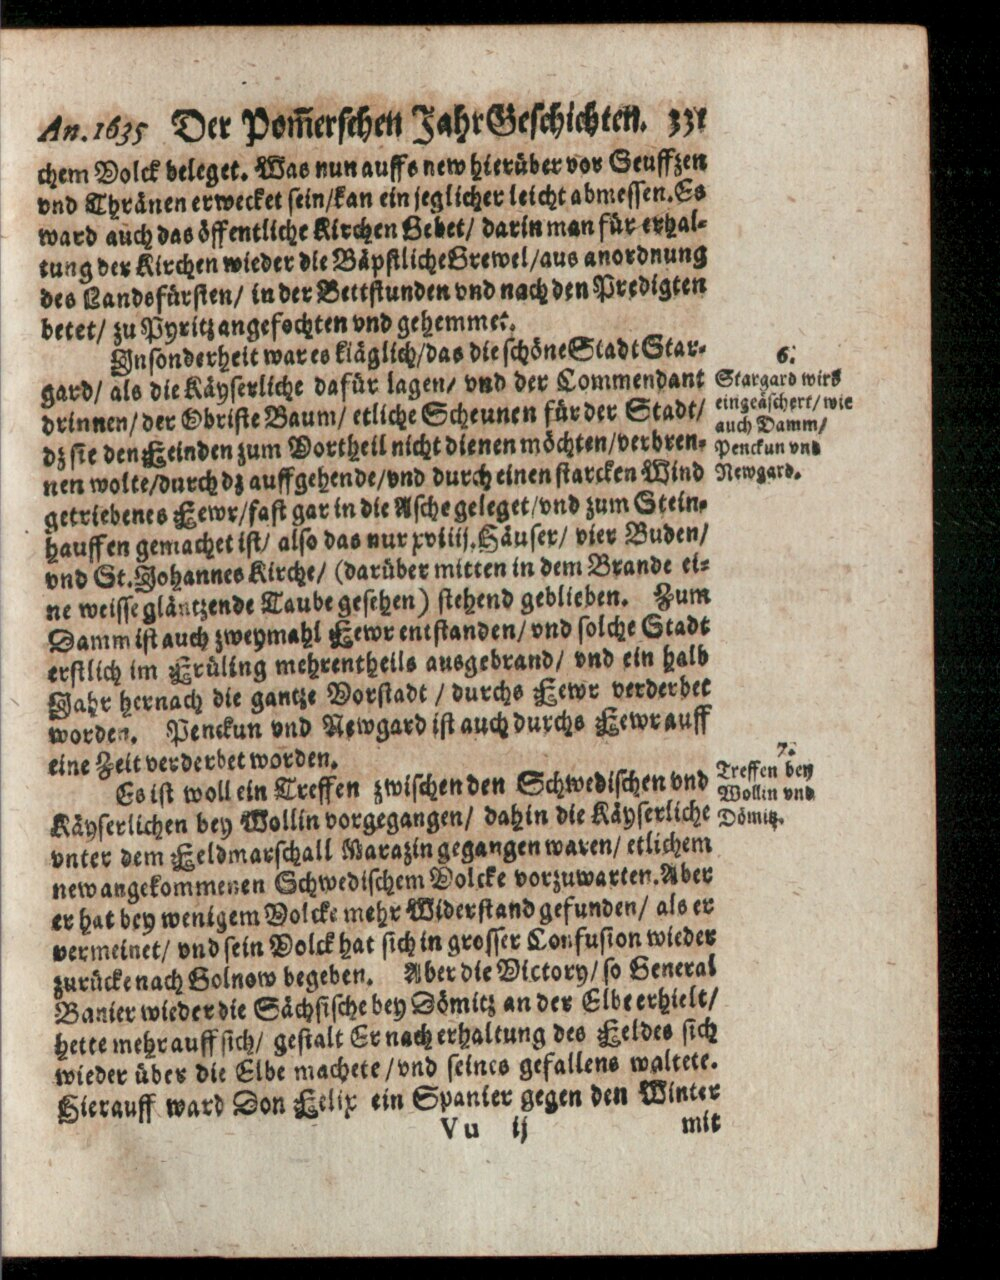 An. 1635 Der Pom̃erschen JahrGeschichten. 331
chem Volck beleget. Was nun auffs new hierüber vor Seuffzen
vnd Thränen erwecket sein/kan ein jeglicher leicht abmessen. Es
ward auch das öffentliche Kirchen Gebet/ darin man für erhal-
tung der Kirchen wieder die Bäpstliche Grewel/aus anordnung
des Landsfürsten/ in der Bettstunden vnd nach den Predigten
betet/ zu Pyritz angefochten vnd gehemmet.
Insonderheit war es kläglich/das die schöne Stadt Star-
gard/ als die Käyserliche dafür lagen/ vnd der Commendant
drinnen/der Obriste Baum/ etliche Scheunen für der Stadt/
dz sie den Feinden zum Vortheil nicht dienen möchten/verbren-
nen wolte/durch dz auffgehende/vnd durch einen starcken Wind
getriebenes Fewr/fast gar in die Asche geleget/vnd zum Stein-
hauffen gemachet ist/ also das nur xviiij. Häuser/ vier Buden/
vnd St. Johannes Kirche/ (darüber mitten in dem Brande ei-
ne weisse gläntzende Taube gesehen) stehend geblieben. Zum
Damm ist auch zweymahl Fewr entstanden/ vnd solche Stadt
erstlich im Früling mehrentheils ausgebrand/ vnd ein halb
Jahr hernach die gantze Vorstadt / durchs Fewr verderbet
worden. Penckun vnd Newgard ist auch durchs Fewr auff
eine Zeit verderbet worden.
6.
Stargard wird
eingeäschert/ wie
auch Damm/
Penckun vnd
Newgard.
Es ist woll ein Treffen zwischen den Schwedischen vnd
Käyserlichen bey Wollin vorgegangen/ dahin die Käyserliche
vnter dem Feldmarschall Marazin gegangen waren/ etlichem
new angekommenen Schwedischem Volcke vorzuwarten. Aber
er hat bey wenigem Volcke mehr Widerstand gefunden/ als er
vermeinet/ vnd sein Volck hat sich in grosser Confusion wieder
zurücke nach Golnow begeben. Aber die Victory/ so General
Banier wieder die Sächsische bey Dömitz an der Elbe erhielt/
hette mehr auff sich/ gestalt Er nach erhaltung des Feldes sich
wieder über die Elbe machete/vnd seines gefallens waltete.
Hierauff ward Don Felix ein Spanier gegen den Winter
7.
Treffen bey
Wollin vnd
Dömitz.
Vu ij mit